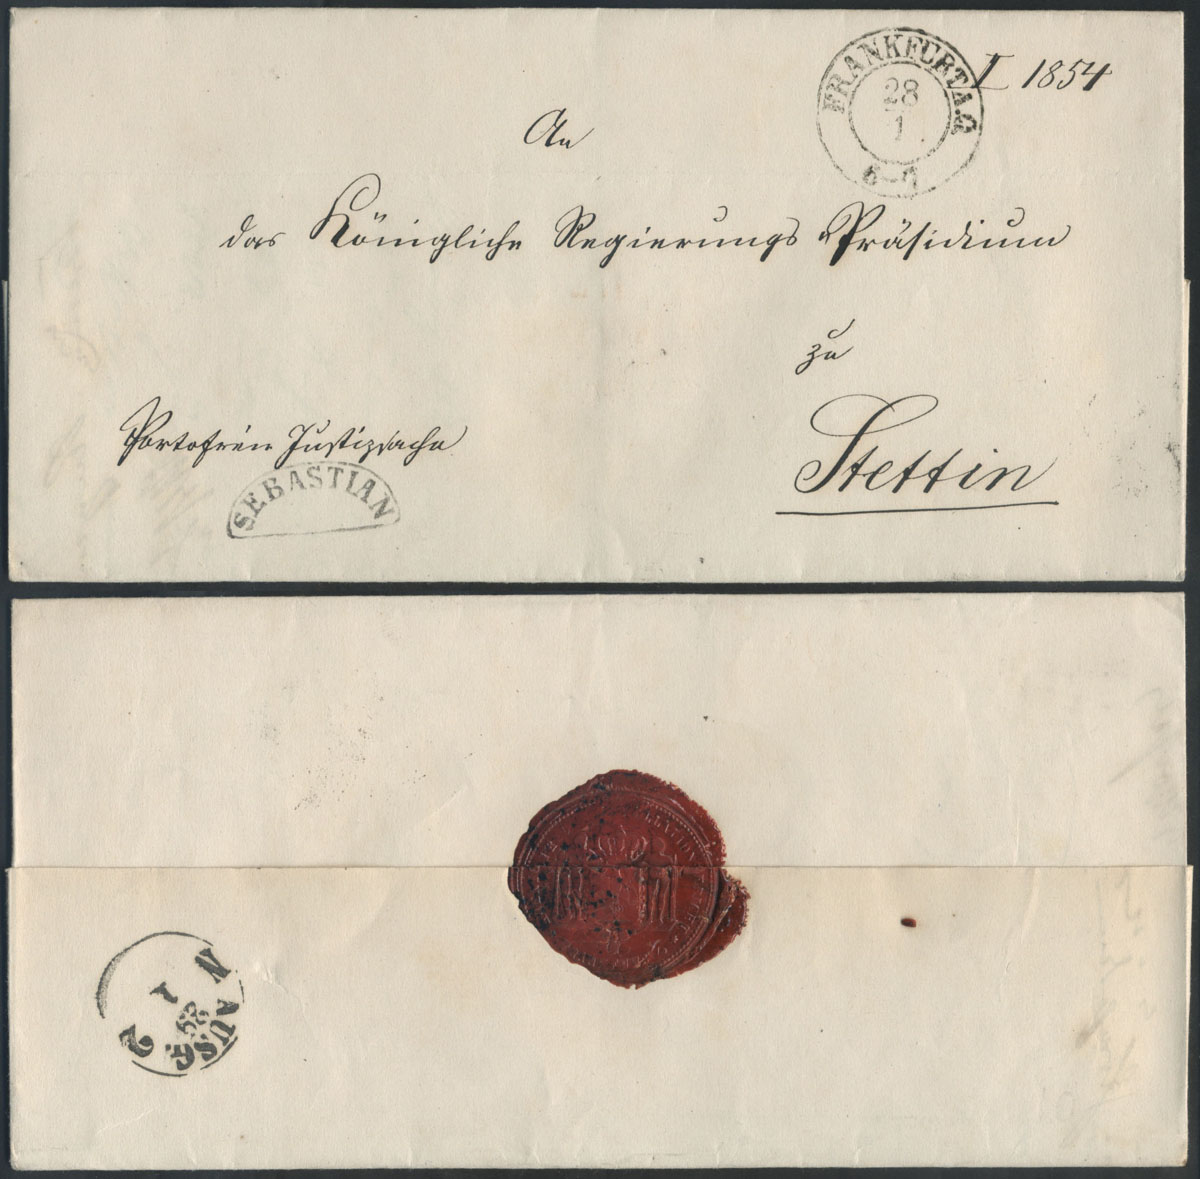 FRANKFURT A.O.
28
1
5-7
I 1854
An
das Königliche Regierungs Präsidium
zu
Stettin
Portofreie Justizsache
SEBASTIAN
N 1
AUSG
29
2